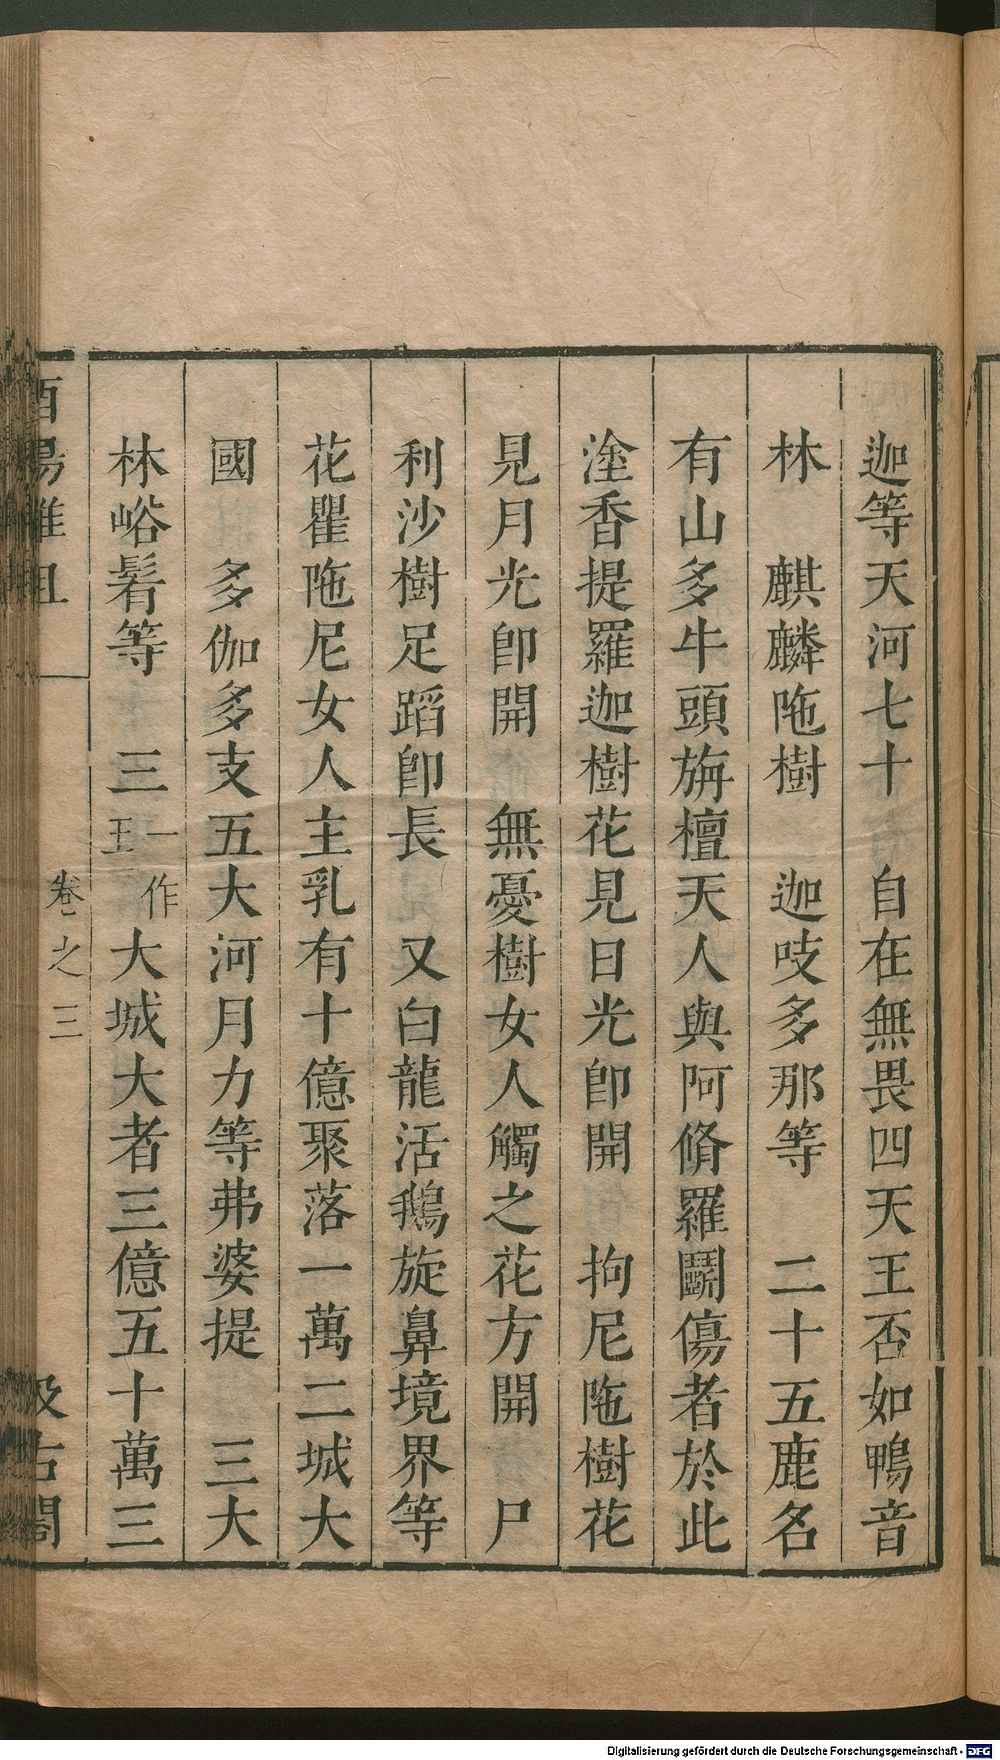 迦等天河七十　自在無畏四天王否如鴨音
林　麒麟陁樹　迦吱多那等　二十五鹿名
有山多牛頭旃檀天人與阿脩羅鬭傷者於此
塗香提羅迦樹花見日光卽開　拘尼陁樹花
見月光卽開　無憂樹女人觸之花方開　尸
利沙樹足蹈卽長　又白龍活鵝旋鼻境界等
花瞿陁尼女人主乳有十億聚落一萬二城大
國　多伽多支五大河月力等弗婆提　三大
林峪髾等　三一作王大城大者三億五十萬三
酉陽雜俎
卷之三
汲古閣
Digitalisierung gefördert durch die Deutsche Forschungsgemeinschaft - DFG